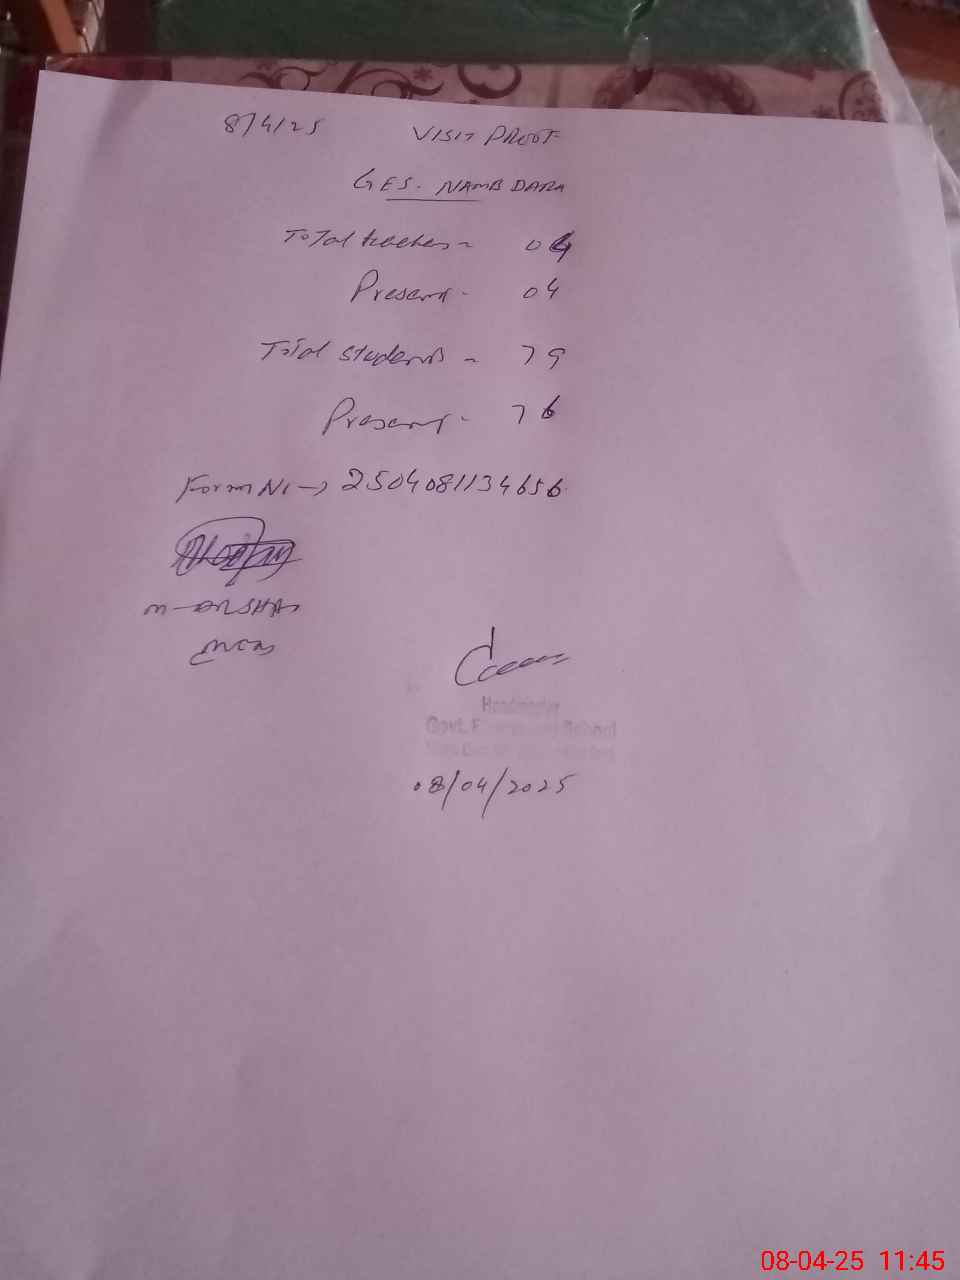 8/4/25 VISIT PROOF
GES. NAMB DARA
Total teachers = 04
Present - 04
Total students - 79
Present - 76
Form No → 2504081134656
Headmaster
Govt. School
08/04/2025
08-04-25 11:45